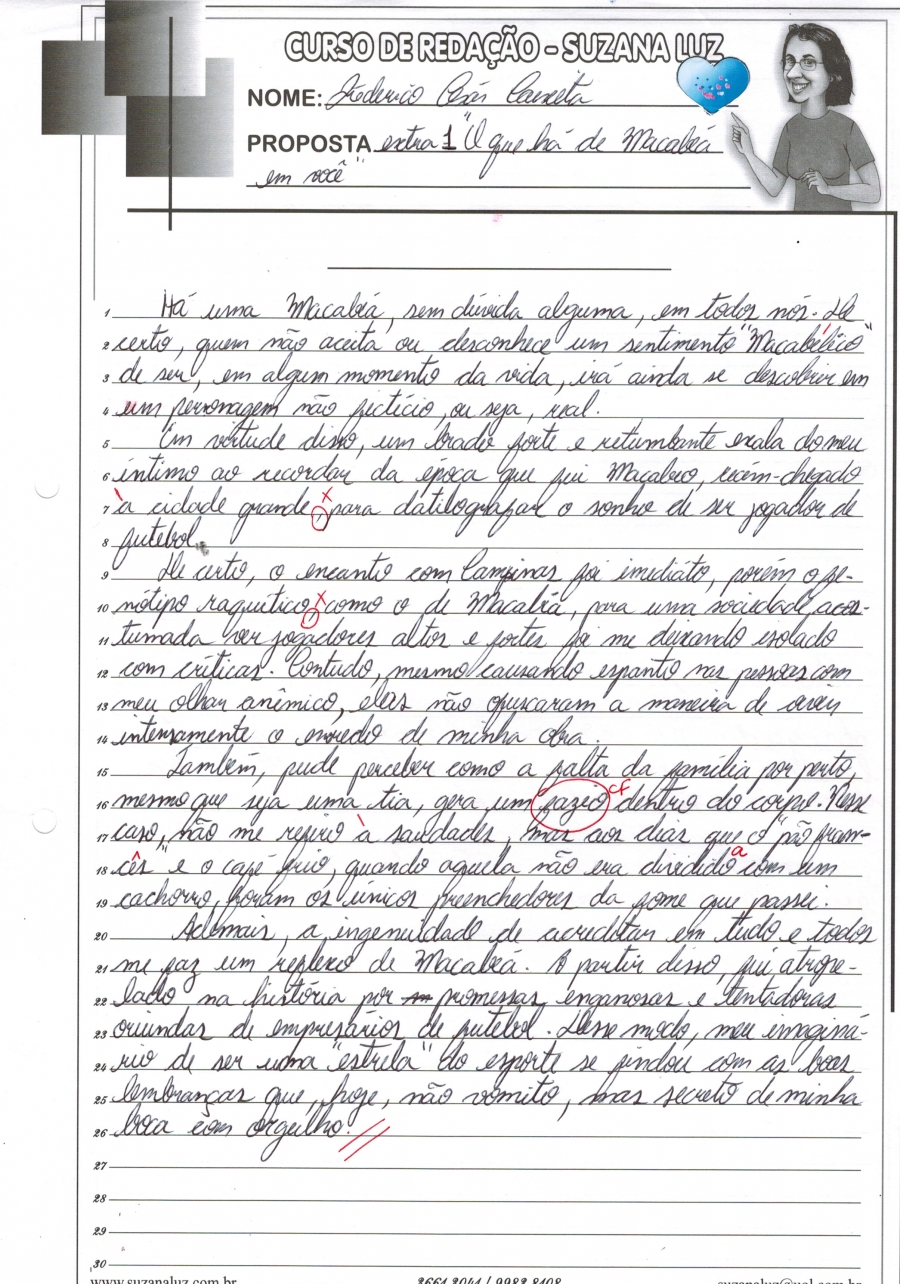 CURSO DE REDAÇÃO - SUZANA LUZ
NOME: Frederico César Caixeta
PROPOSTA extra 1 "O que há de Macabéa
em você"
1 Há uma Macabéa, sem dúvida alguma, em todos nós. De
2 certo, quem não aceita ou desconhece um sentimento "Macabélico"
3 de ser, em algum momento da vida, irá ainda se descobrir em
4 um personagem não fictício, ou seja, real.
5 Em virtude disso, um brado forte e retumbante exala do meu
6 íntimo ao recordar da época que fui Macabeo, recém-chegado
7 à cidade grande, x para datilografar o sonho de ser jogador de
8 futebol.
9 De certo, o encanto com Campinas foi imediato, porém o fe-
10 nótipo raquítico, x como o de Macabéa, para uma sociedade acos-
11 tumada ver jogadores altos e fortes foi me deixando isolado
12 com críticas. Contudo, mesmo causando espanto nas pessoas com
13 meu olhar anêmico, elas não ofuscaram a maneira de viver
14 intensamente o enredo de minha obra.
15 Também, pude perceber como a falta da família por perto,
16 mesmo que seja uma tia, gera um cf dentro do corpo. Nesse
17 caso, não me refiro à saudades, mas aos dias que o "pão fran-
18 cês" e o café frio, quando aquela não era dividido a com um
19 cachorro, foram os únicos preenchedores da fome que passei.
20 Ademais, a ingenuidade de acreditar em tudo e todos
21 me faz um reflexo de Macabéa. A partir disso, fui atrope-
22 lado na história por promessas enganosas e tentadoras
23 oriundas de empresários de futebol. Desse modo, meu imaginá-
24 rio de ser uma "estrela" do esporte se findou com as boas
25 lembranças que, hoje, não vomito, mas secreto de minha
26 boca com orgulho.
27
28
29
30
www.suzanaluz.com.br 3661.2041 / 9982.8108 suzanaluz@uol.com.br